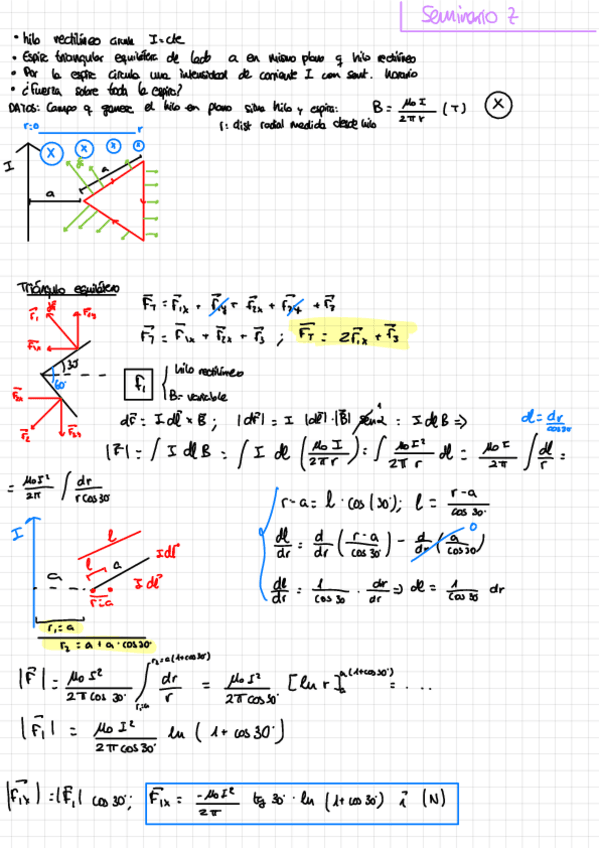 Seminario 7
• hilo rectilíneo circula I=cte
• Espira triangular equilátera de lado a en mismo plano q hilo rectilíneo
• Por la espira circula una intensidad de corriente I con sent. horario
• ¿Fuerza sobre toda la espira?
DATOS: Campo q genera el hilo en plano hilo y espira: B = μ₀ I / 2π r (T) ⓧ
r: dist radial medida desde hilo
r=0 r
I a a
Triángulo equilátero
F⃗T = F⃗1x + F⃗1y + F⃗2x + F⃗2y + F⃗3
F⃗T = F⃗1x + F⃗2x + F⃗3 ; F⃗T = 2F⃗1x + F⃗3
30°
60°
F⃗1 hilo rectilíneo
B = variable
dF⃗ = I dl⃗ × B⃗ ; |dF⃗| = I |dl⃗|·|B⃗| sen α = I dl B =>
dl = dr / cos 30°
|F⃗| = ∫ I dl B = ∫ I dl (μ₀ I / 2π r) = ∫ μ₀ I² / 2π r dl = μ₀ I / 2π ∫ dl / r =
= μ₀ I² / 2π ∫ dr / r cos 30°
r-a = l · cos (30°); l = r-a / cos 30°
dl/dr = d/dr (r-a / cos 30°) - d/dr (a / cos 30) 0
dl/dr = 1 / cos 30° · dr/dr => dl = 1 / cos 30° dr
I l l a Idl⃗
a Idl⃗
r=a
r₁ = a
r₂ = a + a · cos 30°
|F⃗| = μ₀ I² / 2π cos 30° ∫ r₁=a r₂=a(1+cos30°) dr / r = μ₀ I² / 2π cos 30° [ln r] a a(1+cos30°) = ...
|F⃗1| = μ₀ I² / 2π cos 30° ln (1 + cos 30°)
|F⃗1x| = |F⃗1| cos 30°; F⃗1x = -μ₀ I² / 2π tg 30° · ln (1+cos 30°) i⃗ (N)